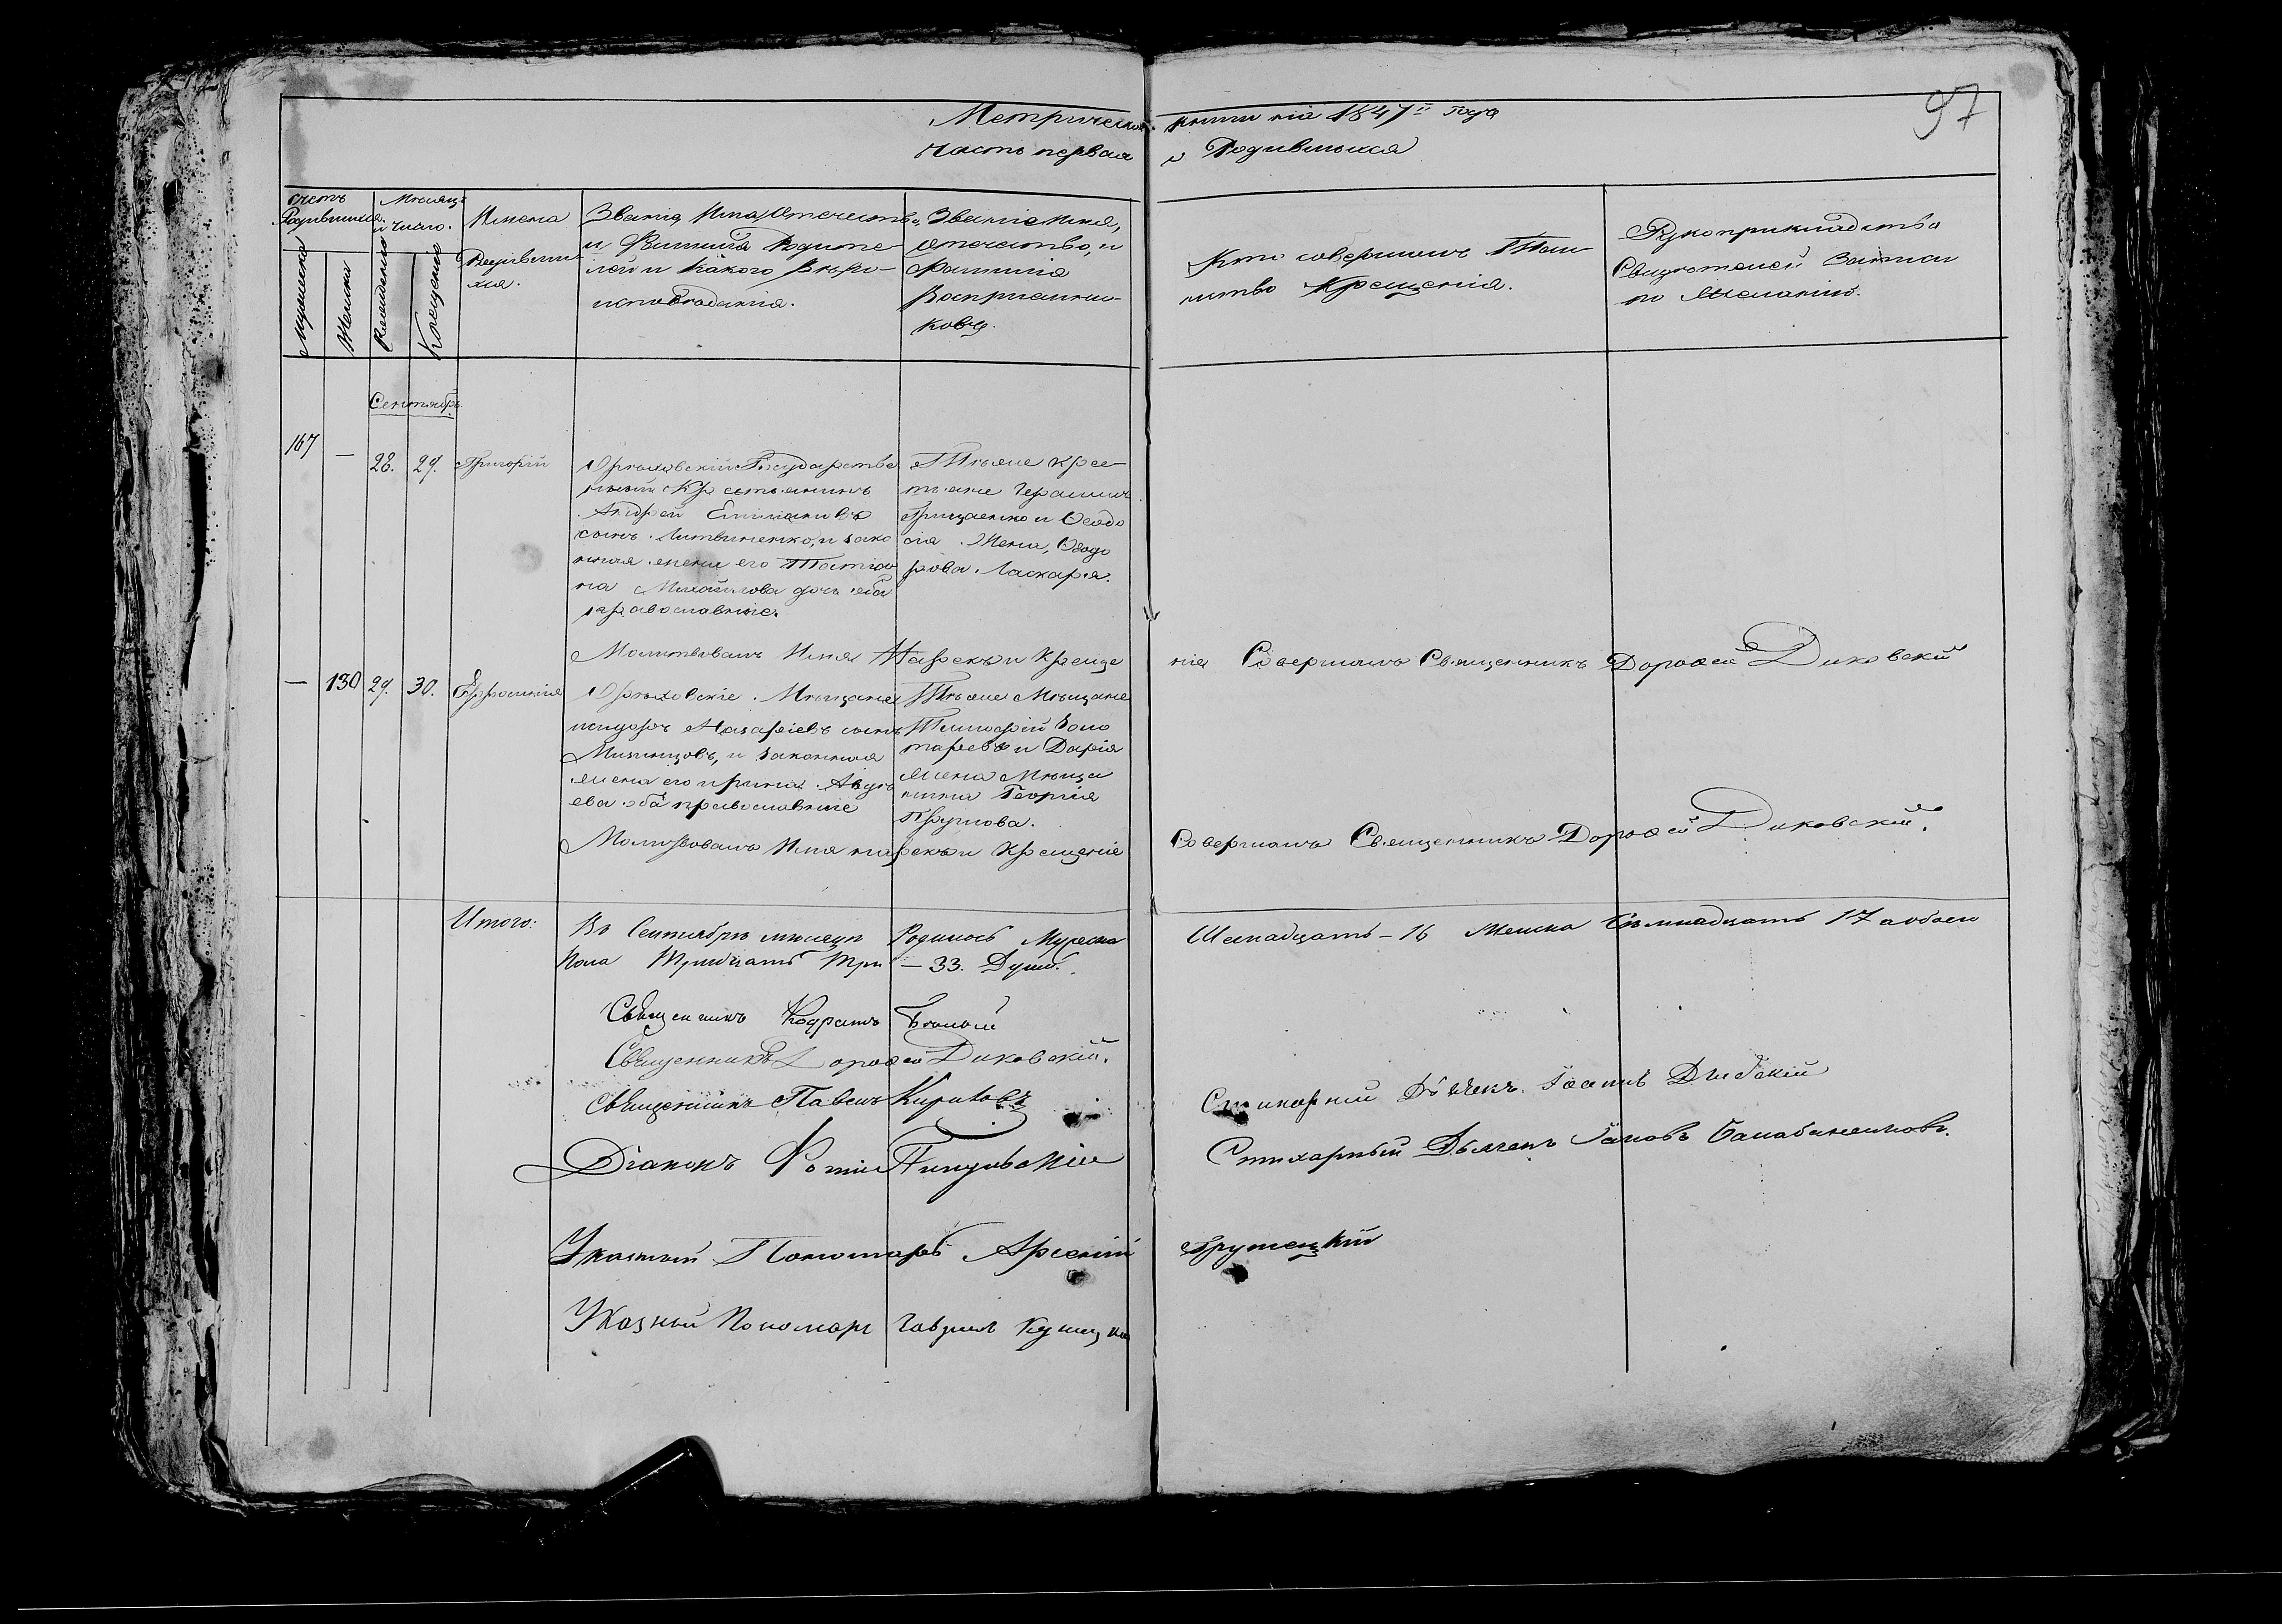 97
Метрической книги на 1847й года
Часть первая о Родившихся
Счетъ Родившихся.
Мужеска
Женска
Мѣсяцъ и число.
Рожденія
Крещенія
Имена
Родивших
хся.
Званія, Имя, Отчество,
и Фамилія Родите
лей и какого Вѣро-
исповѣданія.
Званіе Имя,
Отчество, и
Фамилія
Воспріемни-
ковъ.
Кто совершалъ Таи
нство Крещенія.
Рукоприкладство
Свидѣтелей записи
по желанію.
Сентябрь
167
—
28.
29.
Григорій
Орѣховскій Государстве
нный Крестьянинъ
Андрей Епифаніевъ
сынъ Литвиненко, и зако
нная жена его Татія
на Михайлова дочь оба
православные.
Тѣже крес
тьяне Герасимъ
Грищенко и Ѳеодо
сія жена, Ѳеодо
рова Ласкаря.
Молитвовалъ Имя Нарекъ и Креще
нія Совершалъ Священникъ Дороѳей Диковскій
—
130
29.
30.
Ефросинія
Орѣховскіе Мѣщане
Исидоръ Назаріевъ сынъ
и законная
жена его Ирина Авдѣ
ева оба православные
Тѣже Мѣщане
Тимофій Золо
таревъ и Дарія
жена Мѣща
нина Георгія
Молитвовалъ Имя нарекъ и Крещеніе
Совершалъ Священникъ Дороѳей Диковскій.
Итого:
Въ Сентябрѣ мѣсяцѣ Родилось Мужеска Шеснадцать – 16 Женска Семнадцать 17 а обоего
Пола Тридцать Три — 33. Душъ.
Священникъ Кодратъ Бѣлый
Священникъ Дороѳей Диковскій.
Священникъ Павелъ Кириловъ
Стихарный Дьячекъ Іоаннъ
Діаконъ Фотій
Стихарный Дьячекъ Іаковъ
Указный Пономарь Арсеній
Указный Пономарь Гавріилъ